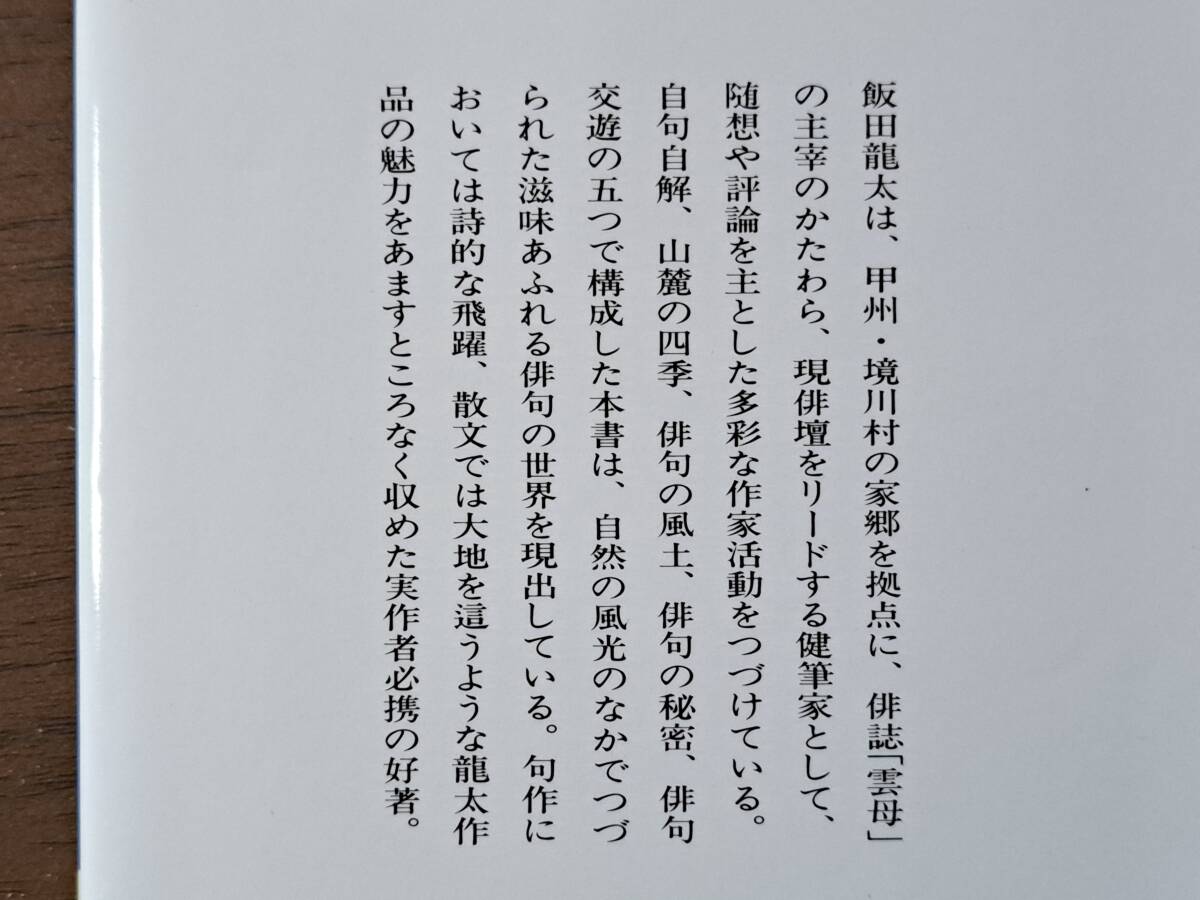 飯田龍太は、甲州・境川村の家郷を拠点に、俳誌「雲母」
の主宰のかたわら、現俳壇をリードする健筆家として、
随想や評論を主とした多彩な作家活動をつづけている。
自句自解、山麓の四季、俳句の風土、俳句の秘密、俳句
交遊の五つで構成した本書は、自然の風光のなかでつづ
られた滋味あふれる俳句の世界を現出している。句作に
おいては詩的な飛躍、散文では大地を這うような龍太作
品の魅力をあますところなく収めた実作者必携の好著。